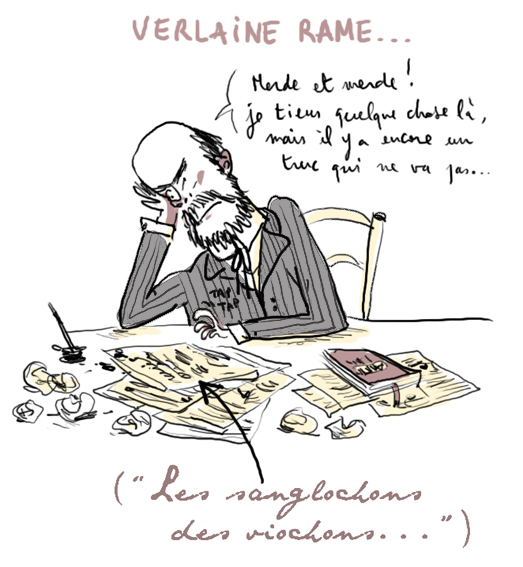 VERLAINE RAME...
Merde et merde !
je tiens quelque chose là,
mais il y a encore un
truc qui ne va pas...
TAP
TAP
("Les sanglochons
des viochons...")